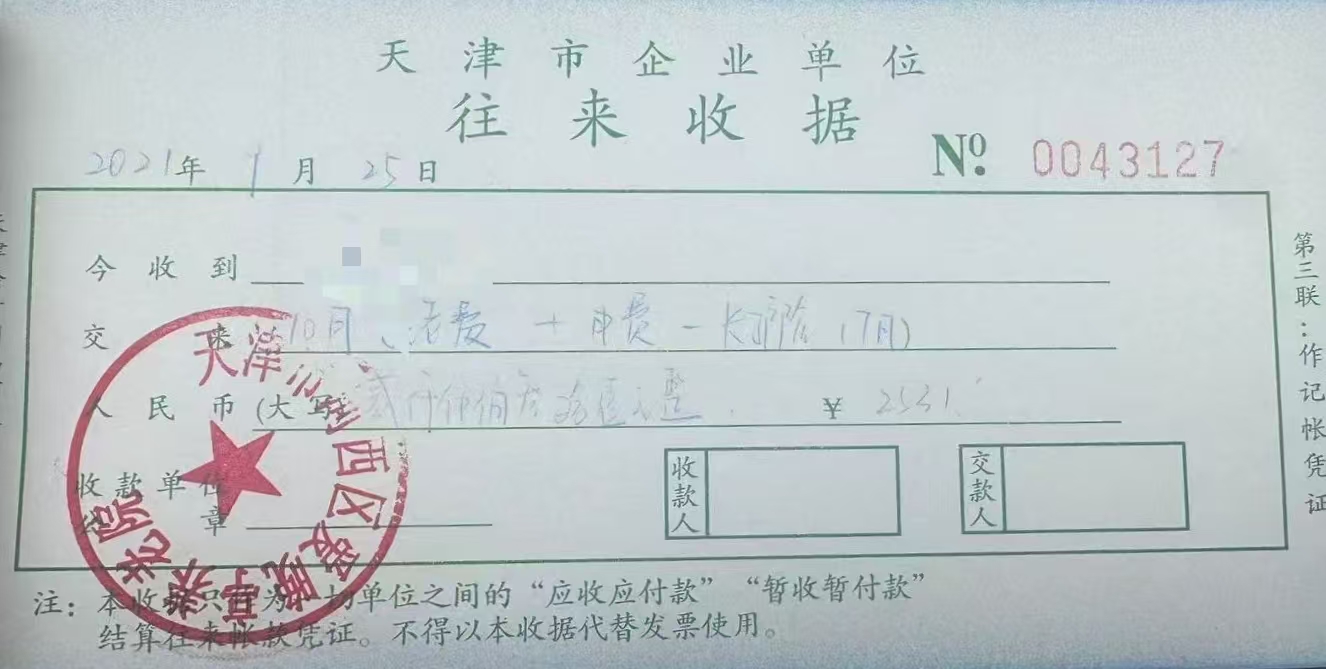 天津市企业单位
往来收据
2021年 1月 25日
№ 0043127
今收到
交来 10月、活费 + 电费 — 长 (7月)
人民币(大写) 贰仟伍佰叁拾壹元整 ¥ 2531
收款单位
公章
收款人
交款人
天津市河西区 颐寿养老院
注：本收据只作为一切单位之间的“应收应付款”“暂收暂付款”
结算往来帐款凭证。不得以本收据代替发票使用。
第三联：作记帐凭证